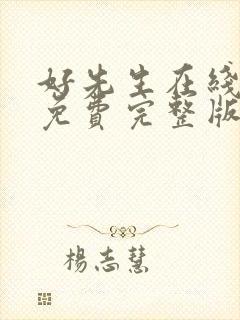 好先生在线
免費完整版
楊志慧